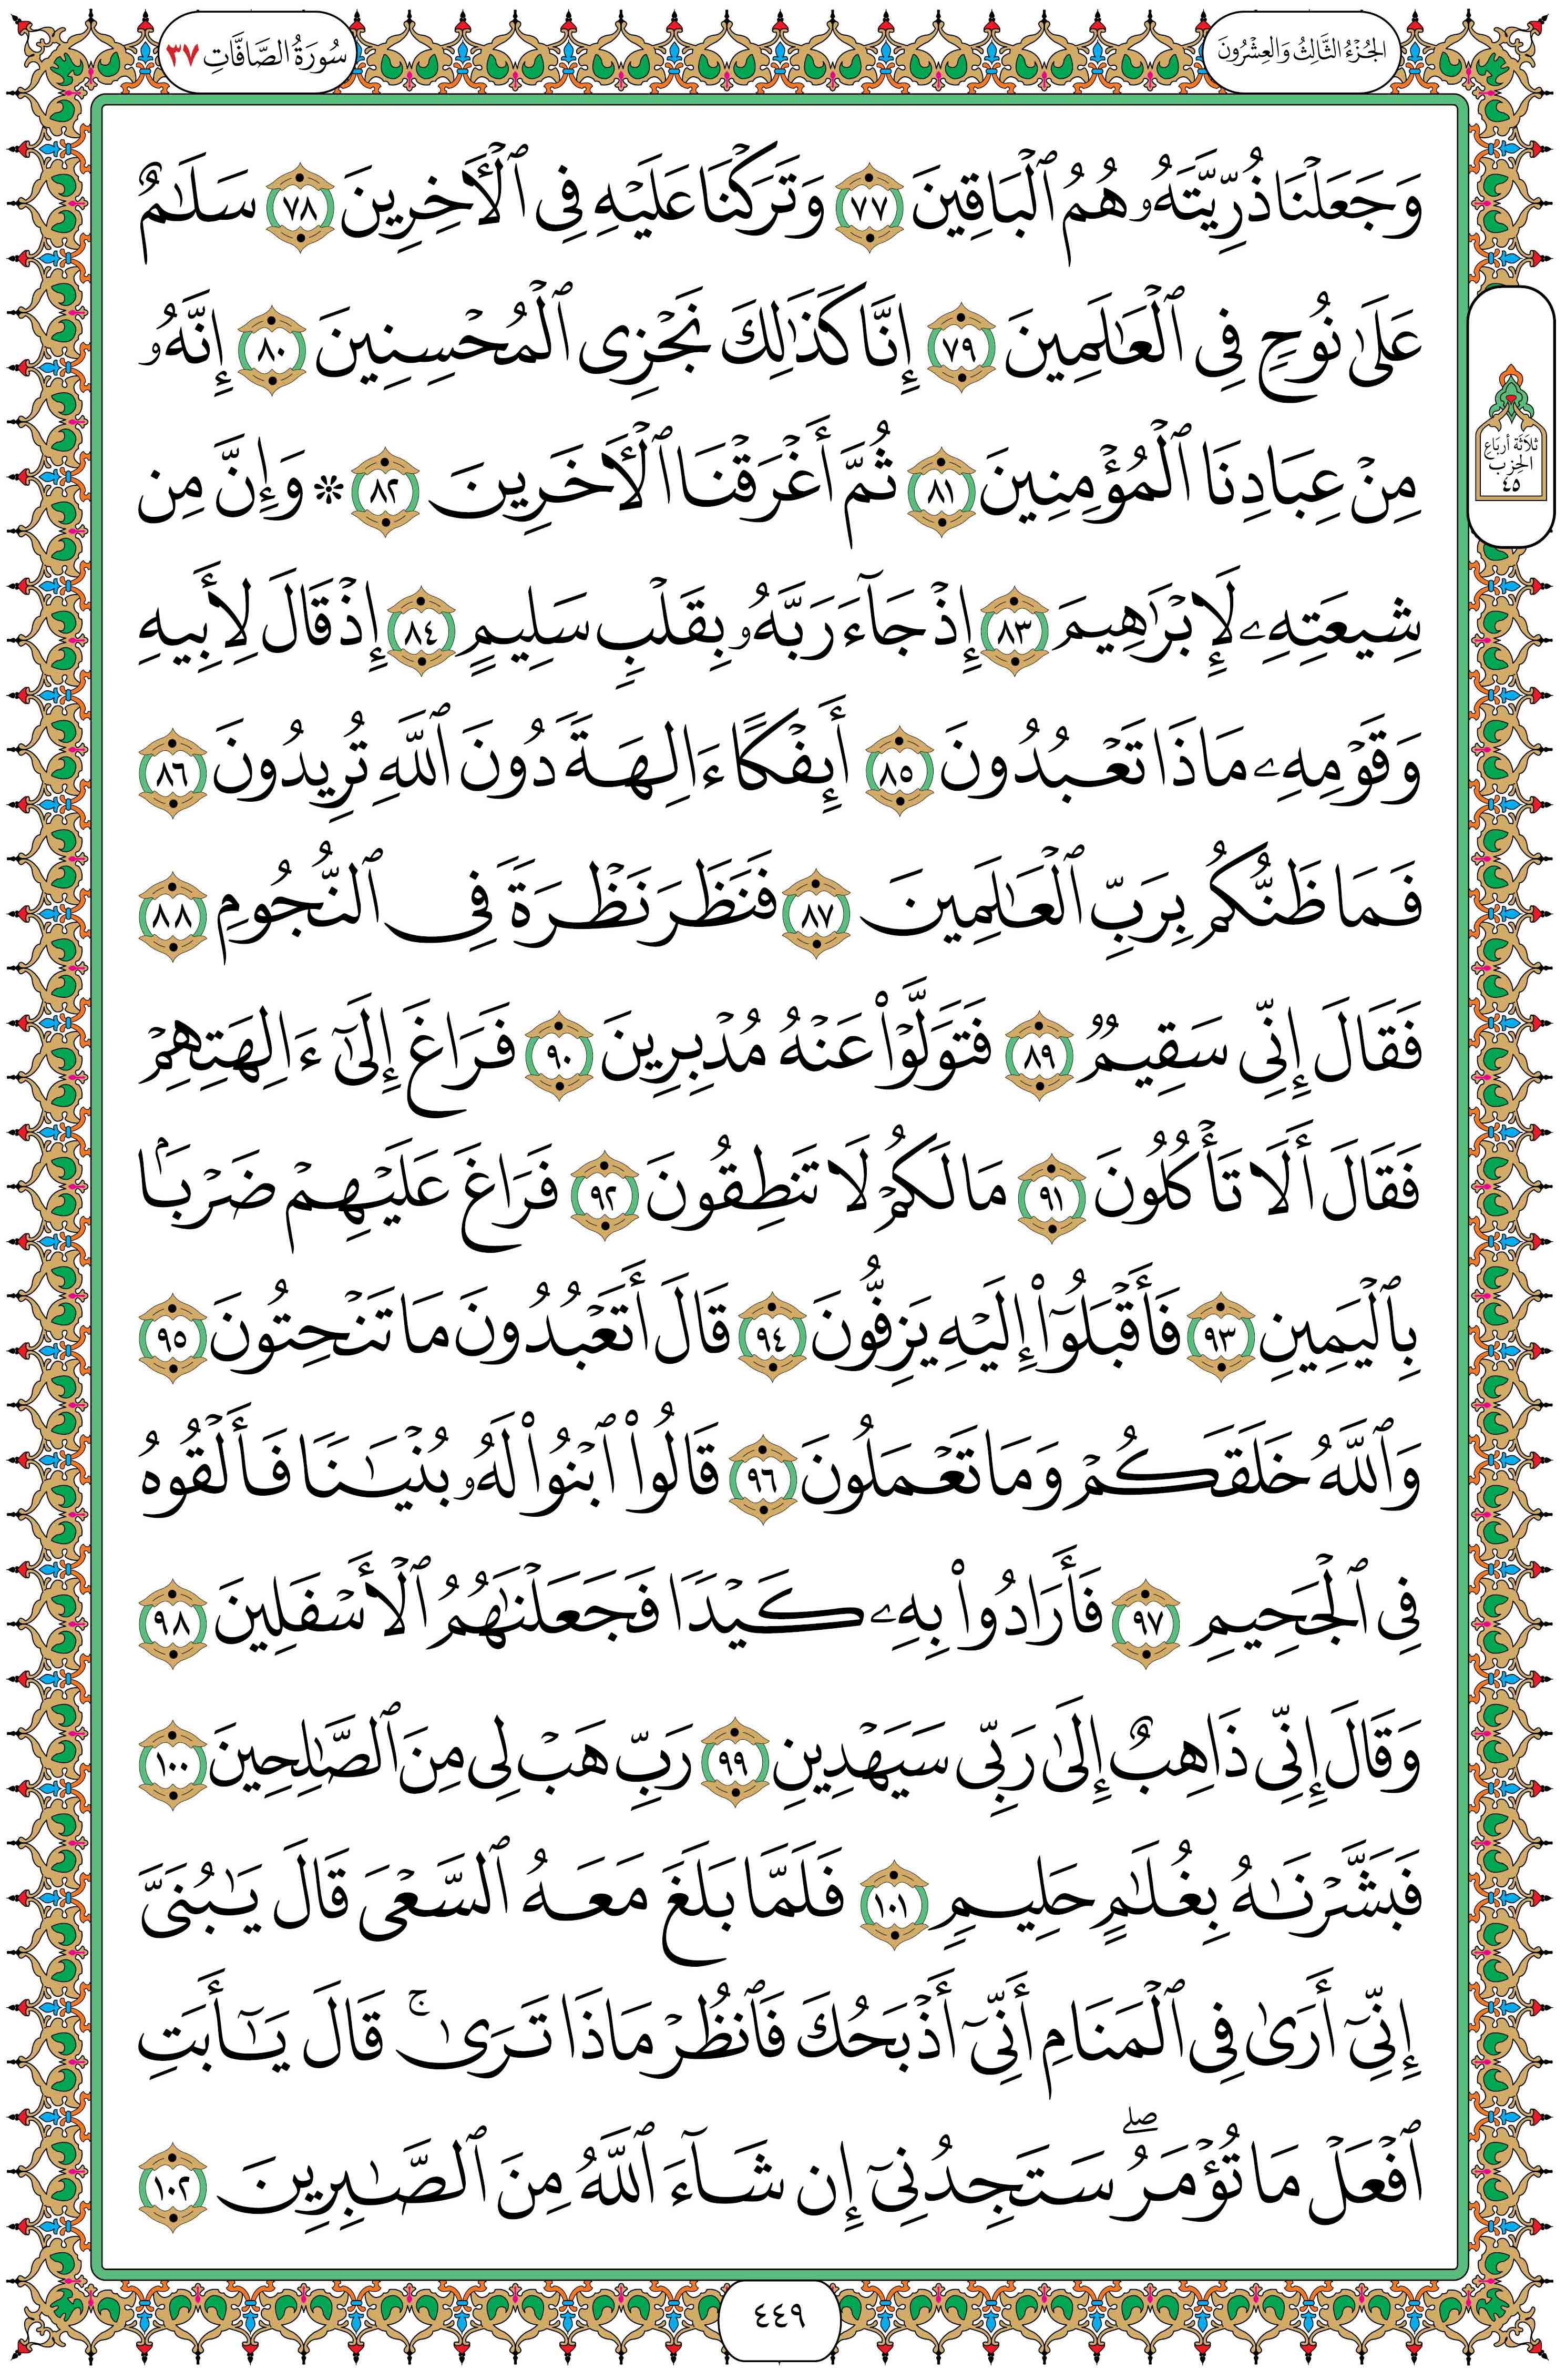 الجُزْءُ الثَّالِثُ وَالعِشْرُونَ
سُورَةُ الصَّافَّاتِ ٣٧
وَجَعَلْنَا ذُرِّيَّتَهُۥ هُمُ ٱلْبَاقِينَ ٧٧ وَتَرَكْنَا عَلَيْهِ فِى ٱلْـَٔاخِرِينَ ٧٨ سَلَـٰمٌ
عَلَىٰ نُوحٍ فِى ٱلْعَـٰلَمِينَ ٧٩ إِنَّا كَذَٰلِكَ نَجْزِى ٱلْمُحْسِنِينَ ٨٠ إِنَّهُۥ
مِنْ عِبَادِنَا ٱلْمُؤْمِنِينَ ٨١ ثُمَّ أَغْرَقْنَا ٱلْـَٔاخَرِينَ ٨٢ * وَإِنَّ مِن
ثلاثة أرباع
الحزب
٤٥
شِيعَتِهِۦ لَإِبْرَٰهِيمَ ٨٣ إِذْ جَآءَ رَبَّهُۥ بِقَلْبٍ سَلِيمٍ ٨٤ إِذْ قَالَ لِأَبِيهِ
وَقَوْمِهِۦ مَاذَا تَعْبُدُونَ ٨٥ أَئِفْكًا ءَالِهَةً دُونَ ٱللَّهِ تُرِيدُونَ ٨٦
فَمَا ظَنُّكُم بِرَبِّ ٱلْعَـٰلَمِينَ ٨٧ فَنَظَرَ نَظْرَةً فِى ٱلنُّجُومِ ٨٨
فَقَالَ إِنِّى سَقِيمٌ ٨٩ فَتَوَلَّوْا۟ عَنْهُ مُدْبِرِينَ ٩٠ فَرَاغَ إِلَىٰٓ ءَالِهَتِهِمْ
فَقَالَ أَلَا تَأْكُلُونَ ٩١ مَا لَكُمْ لَا تَنطِقُونَ ٩٢ فَرَاغَ عَلَيْهِمْ ضَرْبًۢا
بِٱلْيَمِينِ ٩٣ فَأَقْبَلُوٓا۟ إِلَيْهِ يَزِفُّونَ ٩٤ قَالَ أَتَعْبُدُونَ مَا تَنْحِتُونَ ٩٥
وَٱللَّهُ خَلَقَكُمْ وَمَا تَعْمَلُونَ ٩٦ قَالُوا۟ ٱبْنُوا۟ لَهُۥ بُنْيَـٰنًا فَأَلْقُوهُ
فِى ٱلْجَحِيمِ ٩٧ فَأَرَادُوا۟ بِهِۦ كَيْدًا فَجَعَلْنَـٰهُمُ ٱلْأَسْفَلِينَ ٩٨
وَقَالَ إِنِّى ذَاهِبٌ إِلَىٰ رَبِّى سَيَهْدِينِ ٩٩ رَبِّ هَبْ لِى مِنَ ٱلصَّـٰلِحِينَ ١٠٠
فَبَشَّرْنَـٰهُ بِغُلَـٰمٍ حَلِيمٍ ١٠١ فَلَمَّا بَلَغَ مَعَهُ ٱلسَّعْىَ قَالَ يَـٰبُنَىَّ
إِنِّىٓ أَرَىٰ فِى ٱلْمَنَامِ أَنِّىٓ أَذْبَحُكَ فَٱنظُرْ مَاذَا تَرَىٰ ۚ قَالَ يَـٰٓأَبَتِ
ٱفْعَلْ مَا تُؤْمَرُ ۖ سَتَجِدُنِىٓ إِن شَآءَ ٱللَّهُ مِنَ ٱلصَّـٰبِرِينَ ١٠٢
٤٤٩